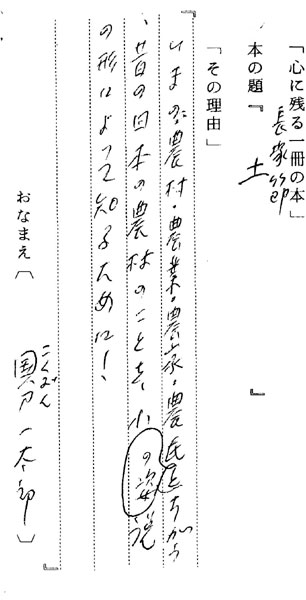 「心に残る一冊の本」
長塚節
本の題『 土 』
「その理由」
『いまの農村・農業・農家・農民たちから
、昔の日本の農村のことを、小の姿説
の形によって知るために!
』
おなまえ〔 〕
こくぶん
国分一太郎